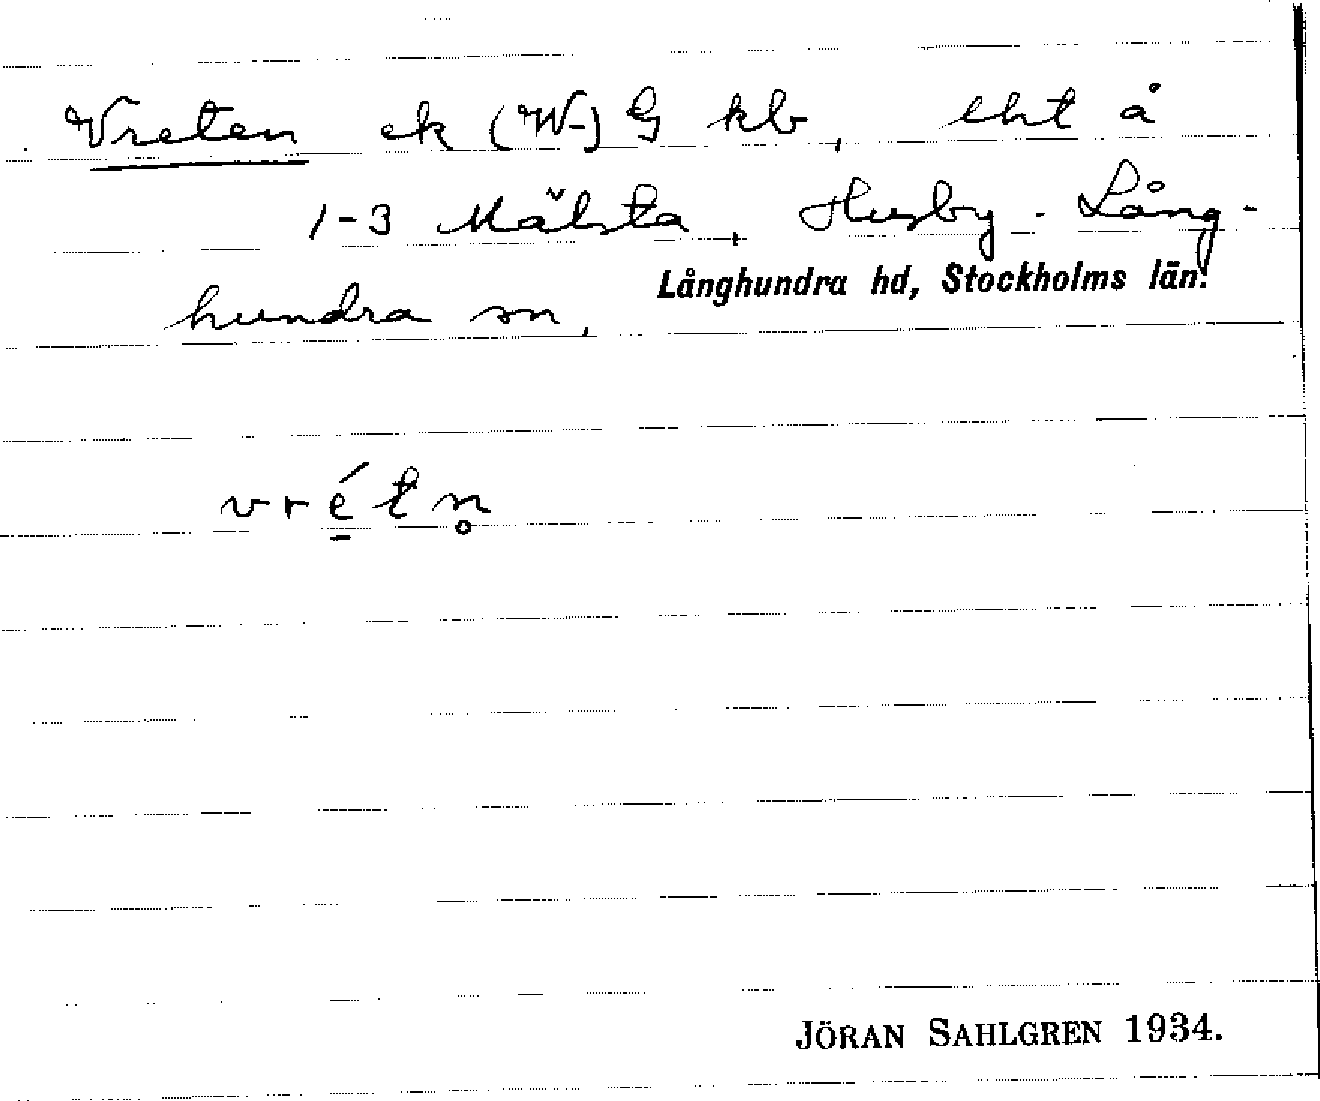 Vreten ek (W-) G kb, lht å
1-3 Mälsta, Husby-Lång-
hundra sn,
Långhundra hd, Stockholms län.
vré̱tn̥
JÖRAN SAHLGREN 1934.